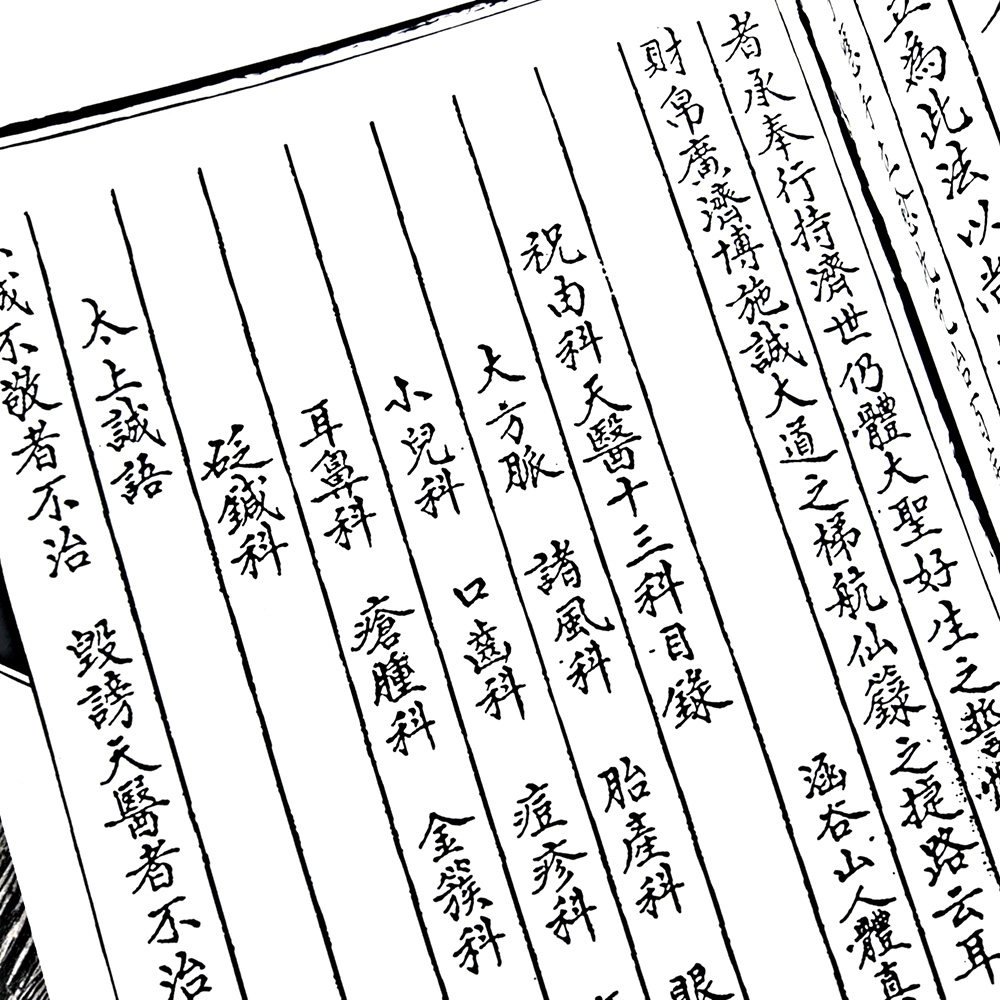 為此法以
者承奉行持濟世仍體大聖好生之
財帛廣濟博施誠大道之梯航仙籙之捷路云耳
涵谷山人體真
祝由科天醫十三科目錄
大方脈 諸風科 胎產科 眼
小兒科 口齒科 痘疹科
耳鼻科 瘡腫科 金簇科
砭鍼科
太上誡語
不敬者不治 毀謗天醫者不治